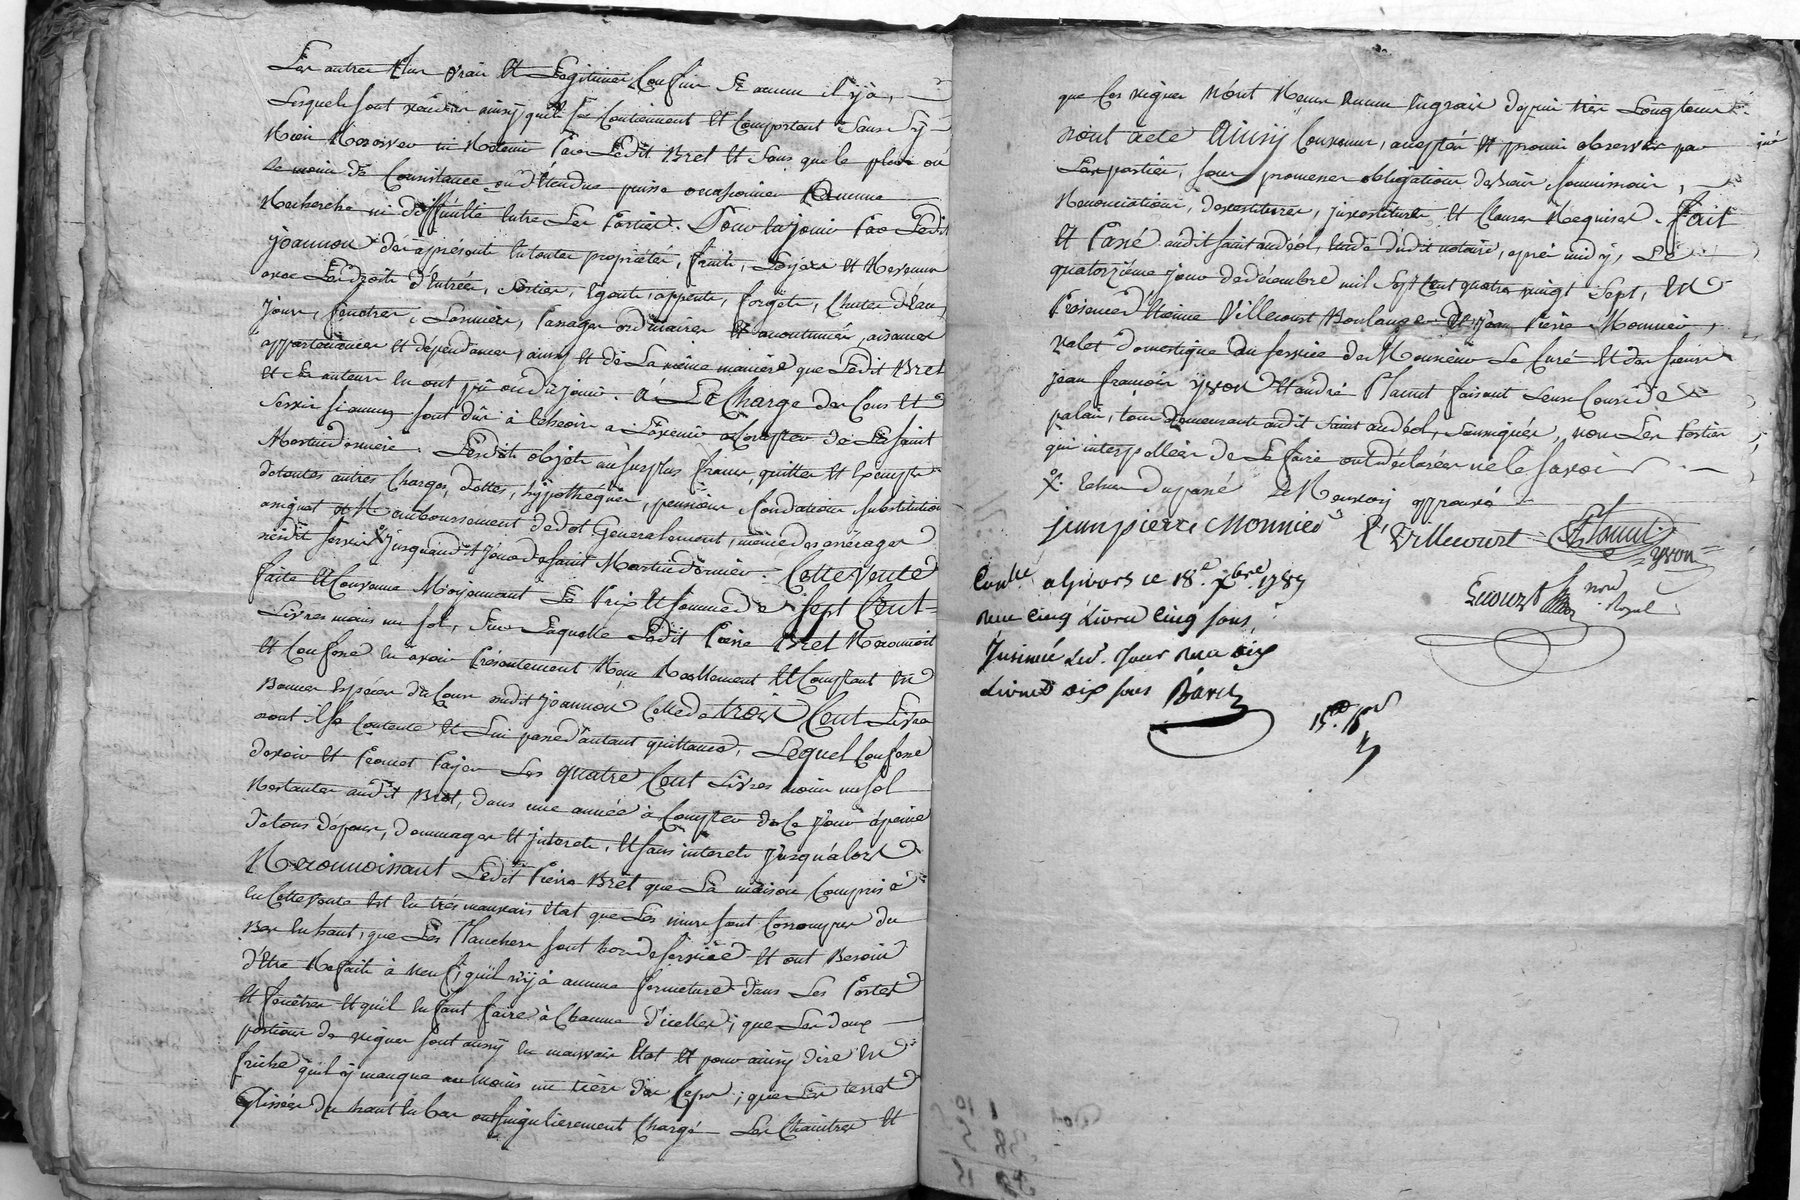 Les autres plus vrais et Legitimes Confins se aucun il y a,
Lesquels sont vendus ainsy quils se Contiennent et Comportent sans s'y
Rien Reserver ni Retenir Par Ledit Bret et sans que le plus ou
le moins de Consistance ou d'Etendue puisse occasionner Aucune
Recherche ni difficulté entre Les Parties. Pour en jouir Par Ledit
joannon dès apresent en toutes proprietés, fruits, Loyers et Revenus
avec Les droits d'Entrées, sorties, Egouts, appents, forgets, Chutes d'Eau,
Jours, fenetres, Larmiers, Passages ordinaires et accoutumés, aisances
appartenances et dependances, ainsy et de La même maniere que Ledit Bret
et ses auteurs en ont pû ou dû jouir. à La Charge des Cens et
Servis si aucuns sont dûs à l'echoir a L'avenir à Compter de La saint
Martin derniere. Lesdits objets au surplus francs, quittes et Exempts
detoutes autres Charges, dettes, hypothéques, pensions fondations substitution
asignat et Remboursement de dot Generalement, même des arrérages
dédit servis ※ jusquaudit jour de saint Martin dernier. Cette Vente
faite et Convenue Moyennant Le Prix et somme de sept Cent
Livres moins un sol, sur Laquelle Ledit Pierre Bret Reconnoit
et Confesse en avoir Présentement Reçu Reellement et Comptant en
Bonnes Espéces du Cours dudit joannon Celle de trois Cent Livres
dont il se Contente et Lui passe d'autant quittance, Lequel Confesse
devoir et Promet Payer Les quatre Cent Livres moins un sol
Restantes audit Bret, dans une année à Compter de Ce jour à peine
de tous dépens, dommages et interets, et sans interets jusqu'alors
Reconnoissant Ledit Pierre Bret que La maison Comprise
en Cette vente est en trés mauvais état que Les murs sont Corrompus du
Bas en haut, que Les Planchers sont hors de service et ont Besoin
d'Etre Refaits à neuf, qu'il n'y à aucune fermeture dans Les Portes
et fenêtres et qu'il en faut faire à Chacune d'icelles; que Les deux
portions de vignes sont aussy en mauvais état et pour ainsy dire en
friche qu'il y manque au moins un tiers des Ceps; que Les terres
Glissées du haut en bas ont singulierement Chargé Les Chaintres et
que Ces vignes n'ont Reçu aucun Engrais depuis très Longtems
n'ont été Ainsy Convenu, accepté et promis observer par
Les parties, sous promesses obligations de biens soumissions,
Renonciations, devestitures, investitures et Clauses Requises. fait
et Passé audit saint andéol, etude dudit notaire, aprés midy, Le
quatorziéme jour de décembre mil sept Cent quatre vingt sept, en
Présence d'Etienne Villecourt Boulanger et jean Pierre Monnier,
valet domestique au service de Monsieur Le Curé et des sieurs
jean françois yvon et andré Planut faisant Leurs Cours de
palais, tous demeurants audit saint andéol, soussignés, non Les Parties
qui interpellées de Le faire ont déclarées ne le savoir.
※ Echus du passé Le Renvoy approuvé
jeanpierre Monnier E Villecourt Planut
yvon
Contlé a Givors le 18e. Xbre. 1787
Reçu Cinq Livres Cinq sous,
Insinué led. Jour Reçu dix
Livres dix sous
nore Royal